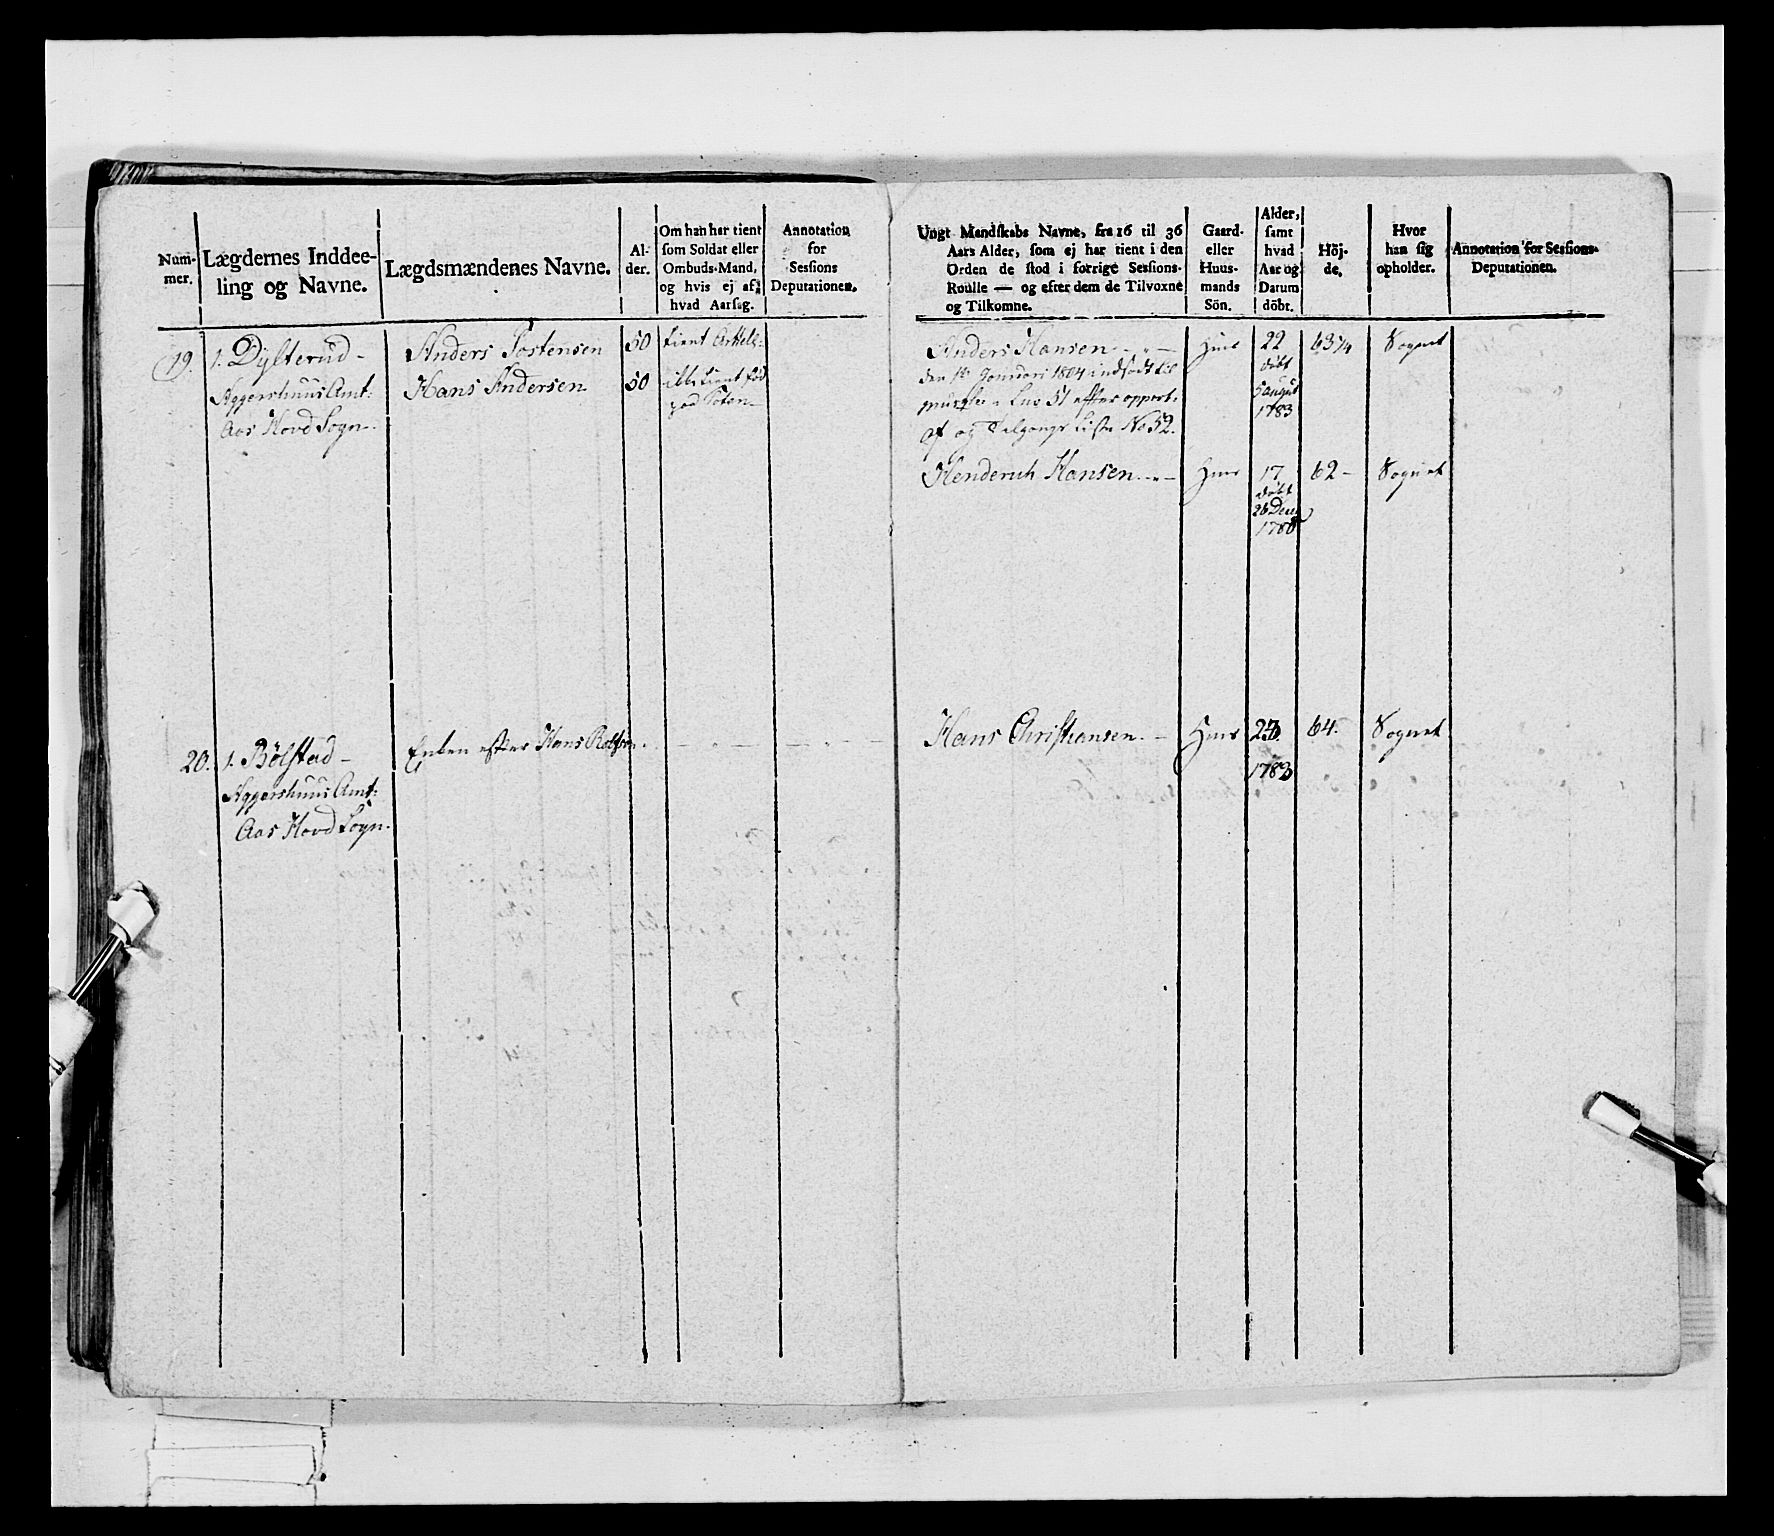 Num-
mer.
Lægdernes Inddee-
ling og Navne.
Lægdsmændenes Navne.
Al-
der.
Om han har tient
som Soldat eller
Ombuds-Mand,
og hvis ej af
hvad Aarsag.
Annotation
for
Sessions
Deputationen.
19.
1. Dÿsterud -
Aggershuus Amt:
Aas Hovd Sogn.
Anders Tostensen
50
tient
Hans Andersen
50
ikke tient
20.
1. Bølstad -
Aggershuus Amt:
Aas Hovd Sogn.
Enken efter Hans Rolfsen.
Ungt Mandskabs Navne, fra 16 til 36
Aars Alder, som ej har tient i den
Orden de stod i forrige Sessions-
Roulle — og efter dem de Tilvoxne
og Tilkomne.
Gaard-
eller
Huus-
mands
Sön.
Alder,
samt
hvad
Aar og
Datum
döbt.
Höj-
de.
Hvor
han sig
opholder.
Annotation for Sessions-
Deputationen.
Anders Hansen
Huus
22
63 1/4
Sognet
den 1te Januari 1804 indskudt til
No 51
og Afgangs Liste No 52.
døbt
5 August
1783
Henderich Hansen
Huus
17
62 -
Sognet
døbt
26 Decr
1788
Hans Christiansen. -
Huus
23.
64.
Sognet
1783